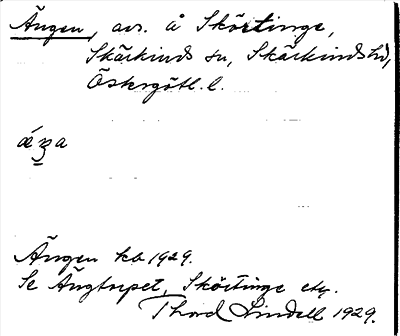 Ängen, avs. å Skörtinge,
Skärkinds sn, Skärkinds hd,
Östergötl. l.
ǽŋa
Ängen kb 1929.
Se Ängtorpet, Skörtinge etc.
Thord Lindell 1929.